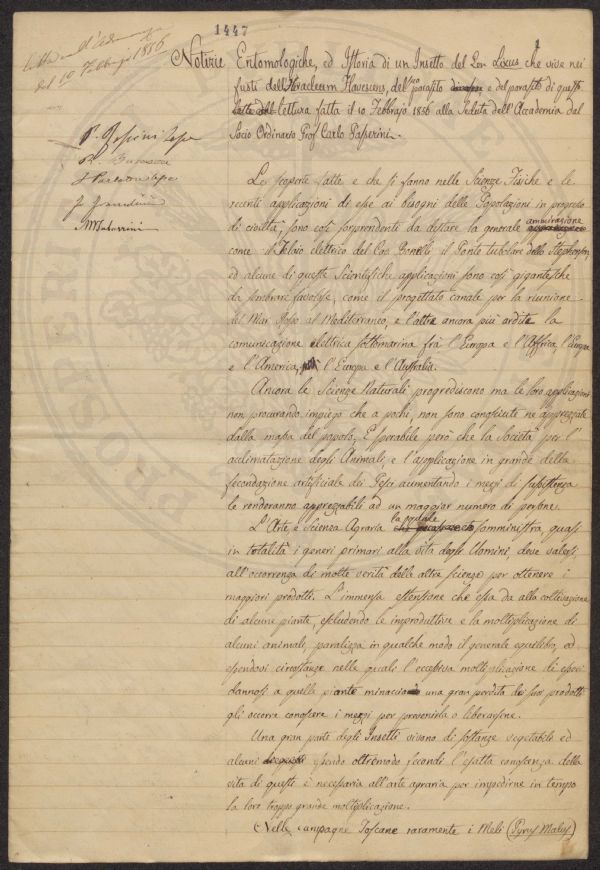 1447
1
del 10 Febbrajo 1856
Notizie Entomologiche, ed Istoria di un Insetto del Gen Lixus che vive nei
fusti dell'Heracleum Flavescens, del suo parasito e del parasito di questo
lettura fatta il 10 Febbrajo 1856 alla Seduta dell'Accademia dal
Socio Ordinario Prof Carlo Passerini.
Le scoperte fatte e che si fanno nelle Scienze Fisiche e le
recenti applicazioni di esse ai bisogni delle Popolazioni in progresso
di civiltà, sono così sorprendenti da destare la generale ammirazione
come il Telaio elettrico del Cav Bonelli il Ponte tubolare dello Stephenson,
ed alcune di queste Scientifiche applicazioni sono così gigantesche
da sembrare favolose, come il progettato canale per la riunione
del Mar Rosso al Mediterraneo, e l'altra ancora più ardita la
comunicazione elettrica sottomarina frà l'Europa e l'Affrica, l'Europa
e l'America, l'Europa e l'Australia.
Ancora le Scienze Naturali progrediscono ma le loro applicazioni
non procurando impiego che a pochi, non sono conosciute nè apprezzate
dalla massa del popolo. È sperabile però che la Società per l'
acclimatazione degli Animali, e l'applicazione in grande della
fecondazione artificiale dei Pesci aumentando i mezzi di sussistenza
le renderanno apprezzabili ad un maggior numero di persone.
L'Arte, e Scienza Agraria la quale somministra quasi
in totalità i generi primari alla vita degli Uomini, deve valersi
all'occorrenza di molte verità delle altre scienze per ottenere i
maggiori prodotti. L'immensa estensione che essa da alla coltivazione
di alcune piante, escludendo le improduttive e la moltiplicazione di
alcuni animali, paralizza in qualche modo il generale equilibrio, ed
essendovi circostanze nelle quali l'eccessiva moltiplicazione di esseri
dannosi a quelle piante minaccia una gran perdita dei suoi prodotti
gli occorre conoscere i mezzi per prevenirla o liberarsene.
Una gran parte degli Insetti vivono di sostanze vegetabili ed
alcuni essendo oltremodo fecondi l'esatta conoscenza della
vita di questi è necessaria all'arte agraria per impedirne in tempo
la loro troppo grande moltiplicazione.
Nelle campagne Toscane raramente i Meli (Pyrus Malus)